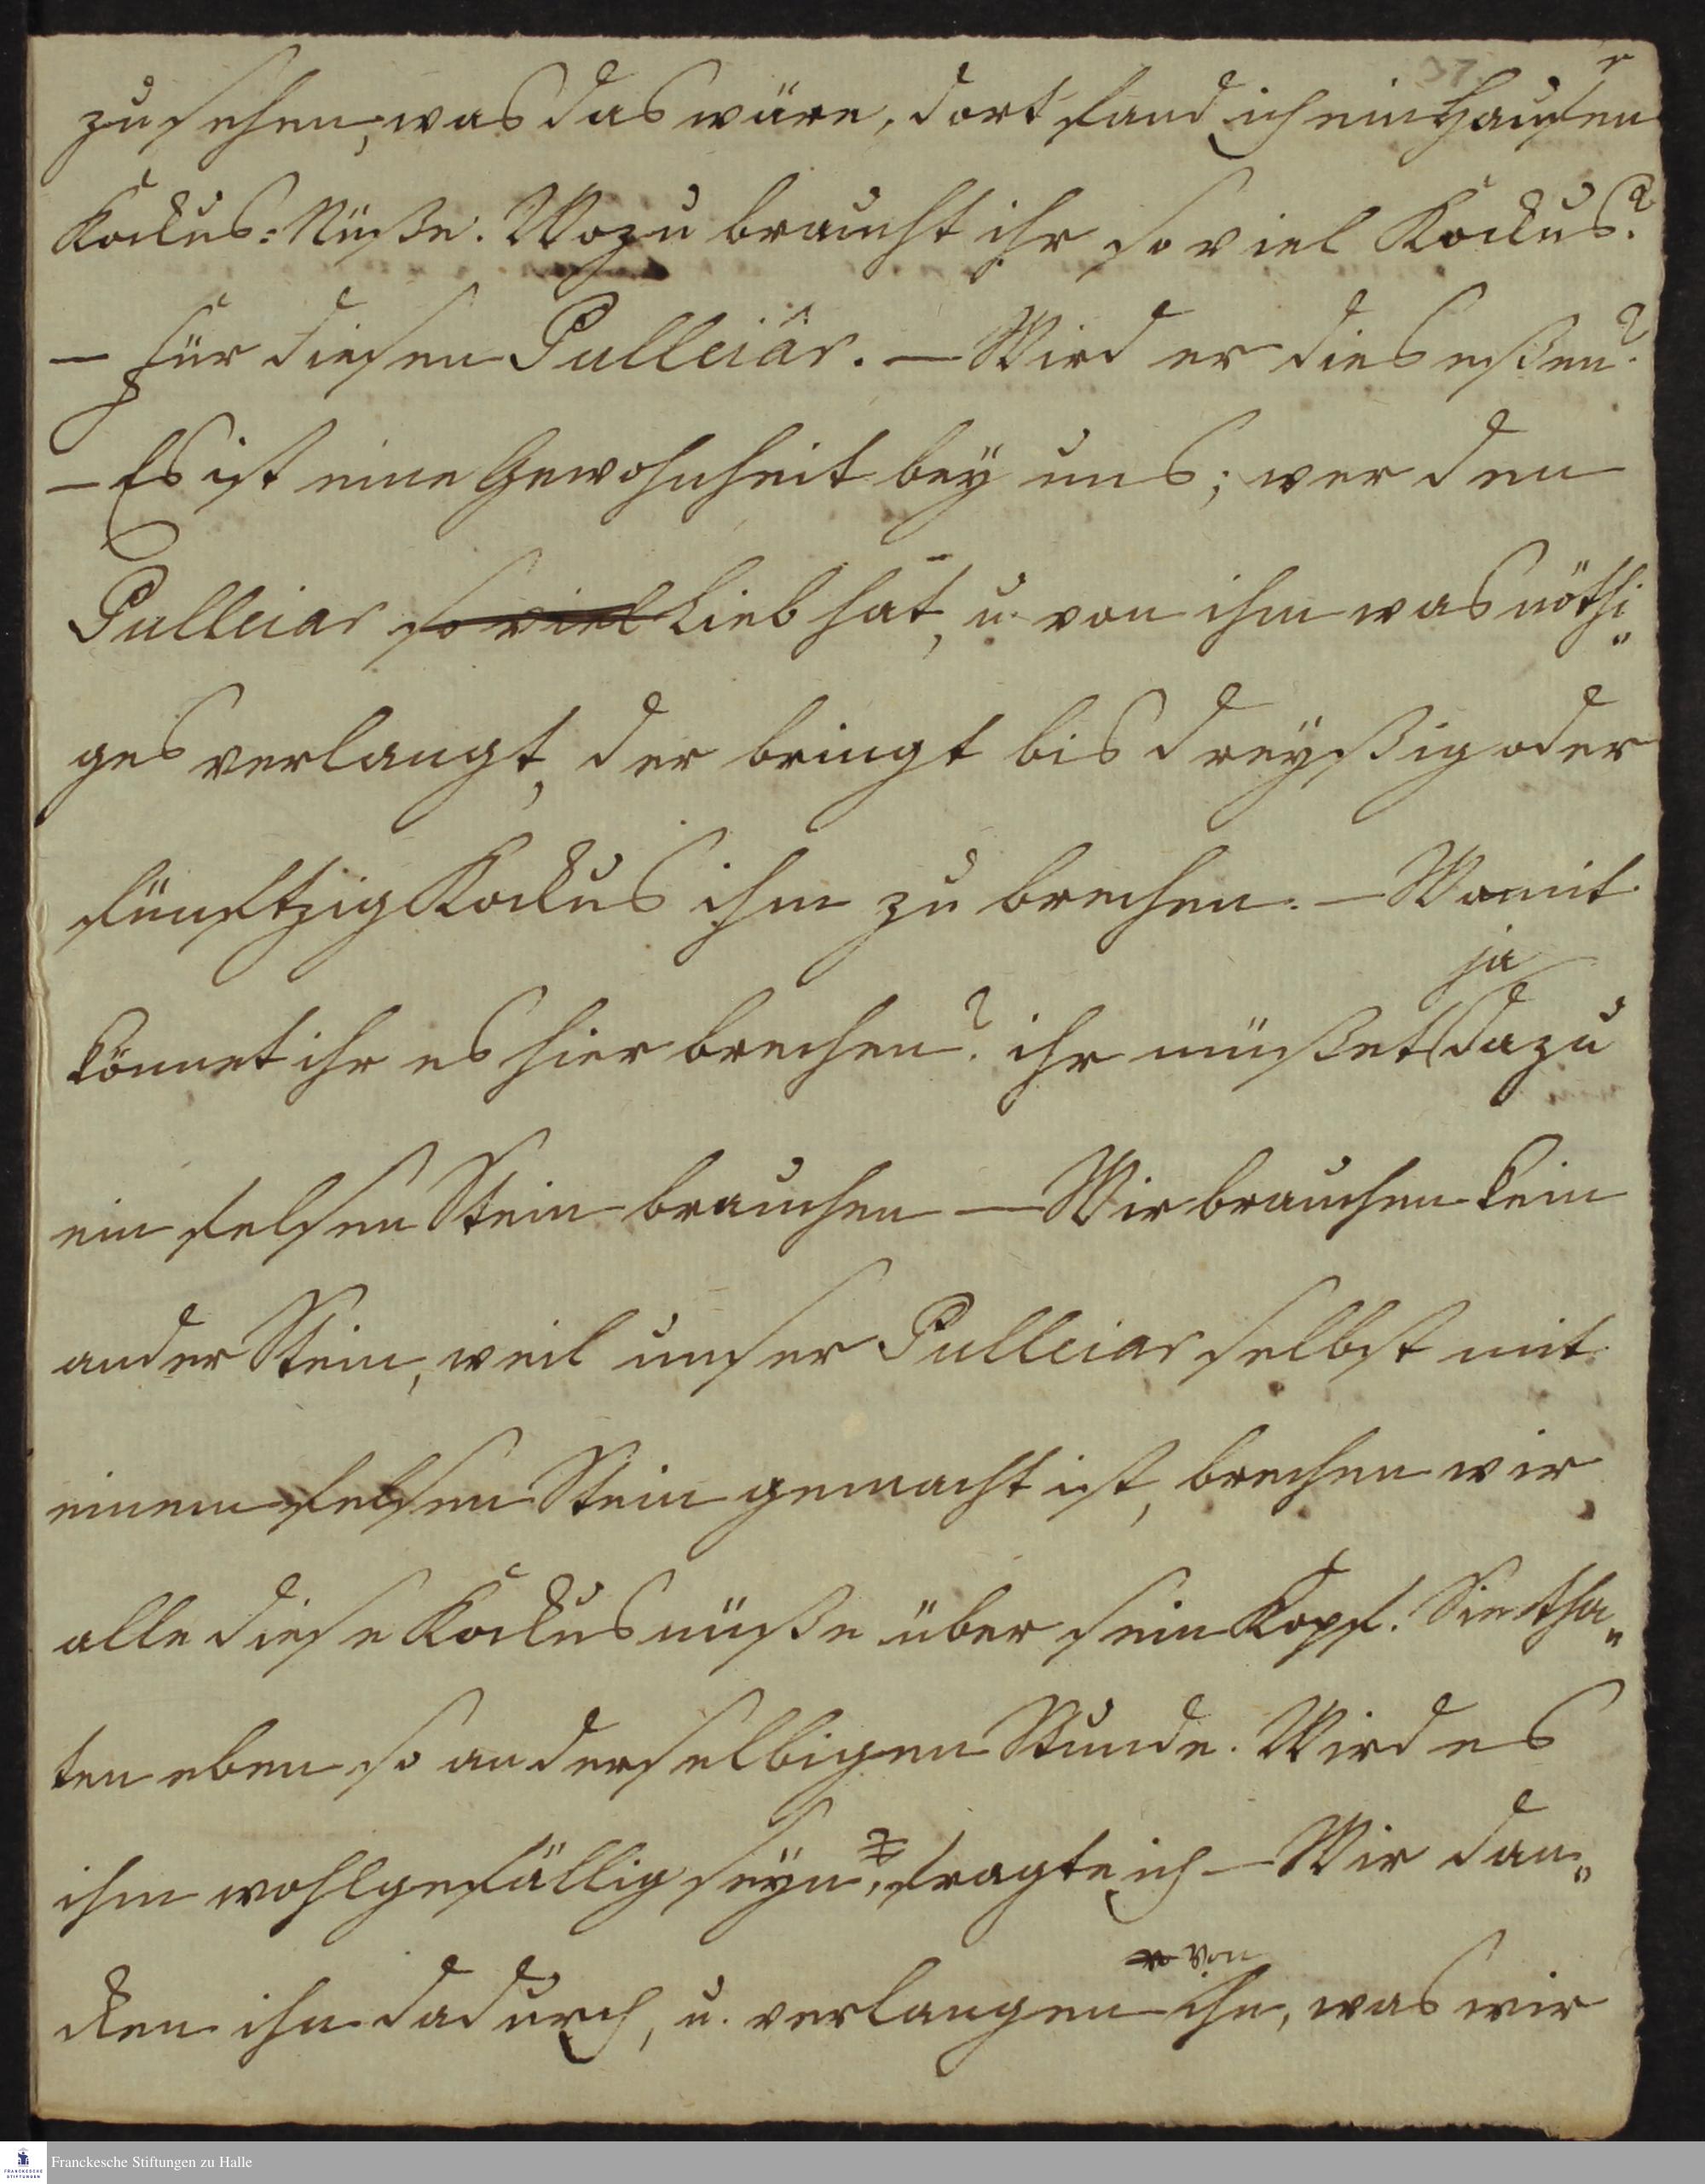 zu sehen, was das wäre, dort fand ich ein Haufen
Kockus: Nüße. Wozu braucht ihr so viel Kockus?
— für diesen Pulleiar. — Wird er dies eßen?
— Es ist eine Gewohnheit bey uns; wer den
Pulleiar so viel Lieb hat, u. von ihm was nöthi„
ges verlangt, der bringt bis dreyßig oder
fünftzig Kockus ihm zu brechen. — Womit
ja
könnet ihr es hier brechen? ihr müßet dazu
ein felsen Stein brauchen — Wir brauchen kein
ander Stein, weil unser Pulleiar selbst mit
einem felsen Stein gemacht ist, brechen wir
alle diese Kockusnüße über sein Kopf. Sie tha„
ten eben so an derselbigen Stunde. Wird es
ihm wohlgefällig seyn, fragte ich — Wir dan„
von
cken ihn dadurch, u. verlangen ihn, was wir
Franckesche Stiftungen zu Halle